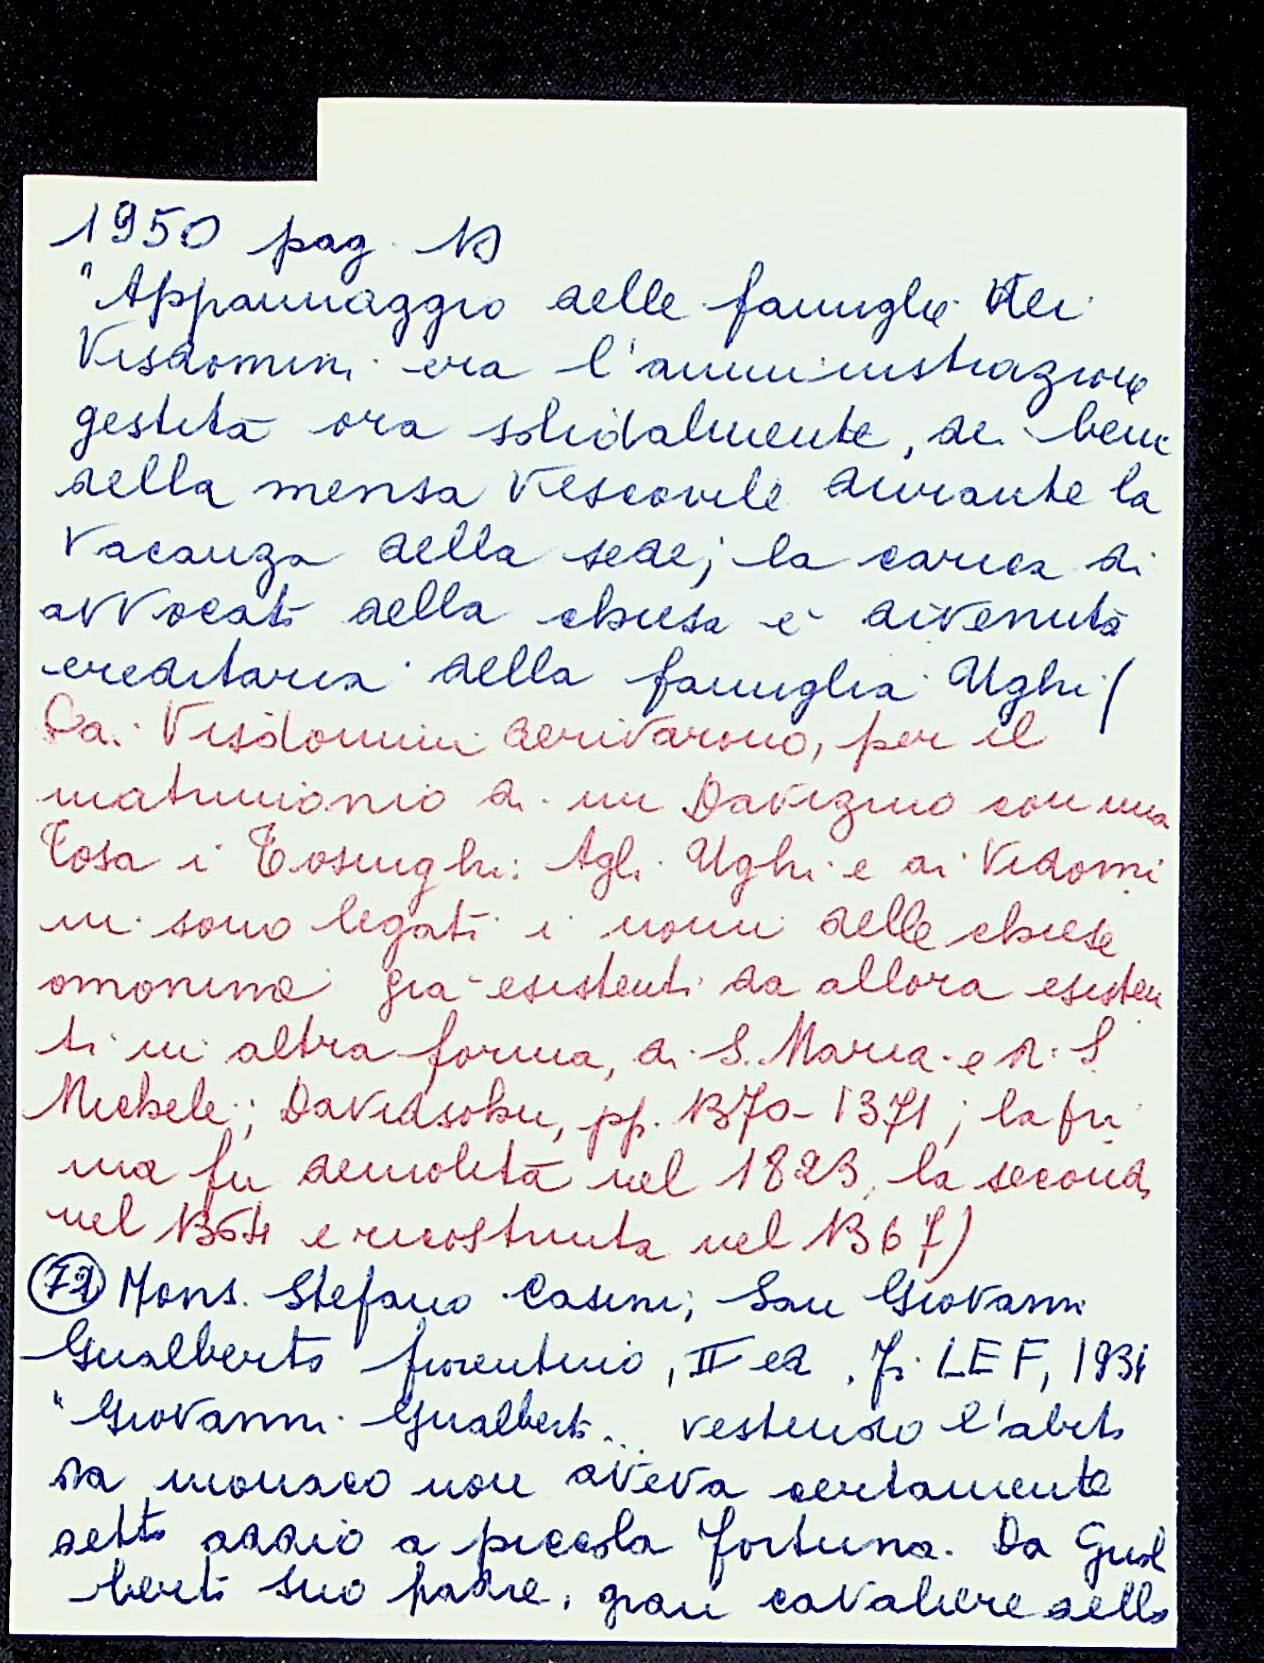 1950 pag. 13
"Appannaggio delle famiglie dei
Visdomini era l'amministrazione
gestita ora solidalmente, dei beni
della mensa Vescovile durante la
Vacanza della sede; la carica di
avvocati della chiesa è divenuta
ereditaria della famiglia Ughi (
Dai Visdomini derivarono, per il
matrimonio di un Davizino con una
Tosa i Tosinghi: Agli Ughi e ai Vidomi
ni sono legati i nomi delle chiese
omonime già esistenti da allora esisten
ti in altra forma, di S. Maria e di S
Michele; Davidsohn, pp. 1370-1371; la pri
ma fu demolita nel 1823, la seconda
nel 1364 e ricostruita nel 1367)
(72) Mons. Stefano Casini; San Giovanni
Gualberto fiorentino, II ed. Fi. LEF, 1934
"Giovanni Gualberto... vestendo l'abito
da monaco non aveva certamente
detto addio a piccola fortuna. Da Gual
berto suo padre, gran cavaliere dello